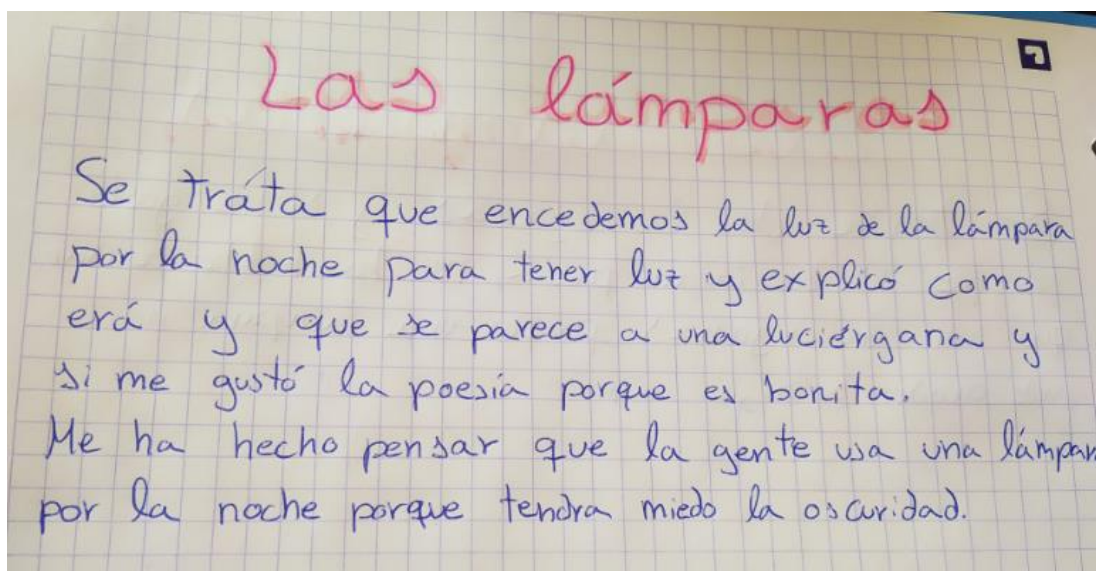 Las lámparas
Se tráta que encedemos la luz de la lámpara
por la noche para tener luz y explicó como
erá y que se parece a una luciérgana y
si me gustó la poesía porque es bonita.
Me ha hecho pensar que la gente usa una lámpar
por la noche porque tendra miedo la oscuridad.